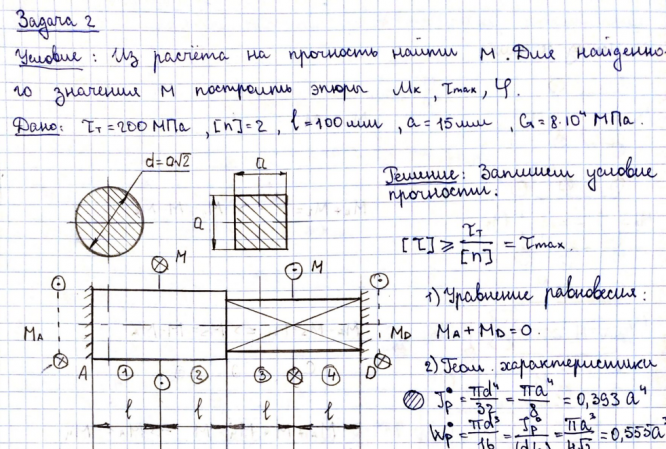 Задача 2
Условие: Из расчёта на прочность найти М. Для найденно-
го значения М построить эпюры Мк, τmax, φ.
Дано: τт = 200 МПа, [n] = 2, l = 100 мм, a = 15 мм, G = 8·10⁴ МПа.
d = a√2
a
a
Решение: Запишем условие
прочности.
[τ] ≥ τт/[n] = τmax.
M
M
MA
MD
A
D
① ② ③ ④
l l l l
1) Уравнение равновесия:
MA + MD = 0.
2) Геом. характеристики
Jp° = πd⁴/32 = πa⁴/8 = 0,393 a⁴
Wp° = πd³/16 = Jp°/ = πa³/4√2 = 0,555 a³